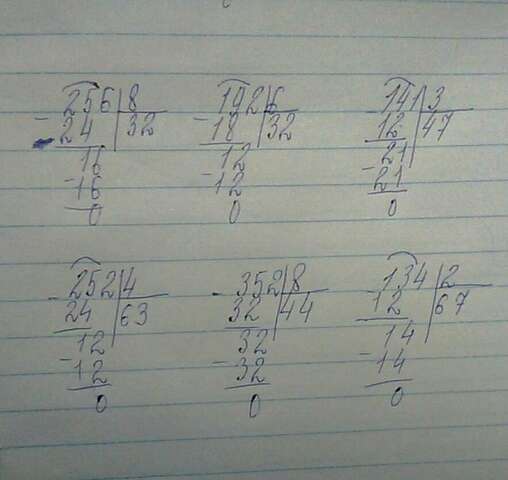 256 8
- 24 32
16
- 16
0
192 6
- 18 32
12
- 12
0
141 3
- 12 47
21
- 21
0
252 4
- 24 63
12
- 12
0
352 8
- 32 44
32
- 32
0
134 2
- 12 67
14
- 14
0